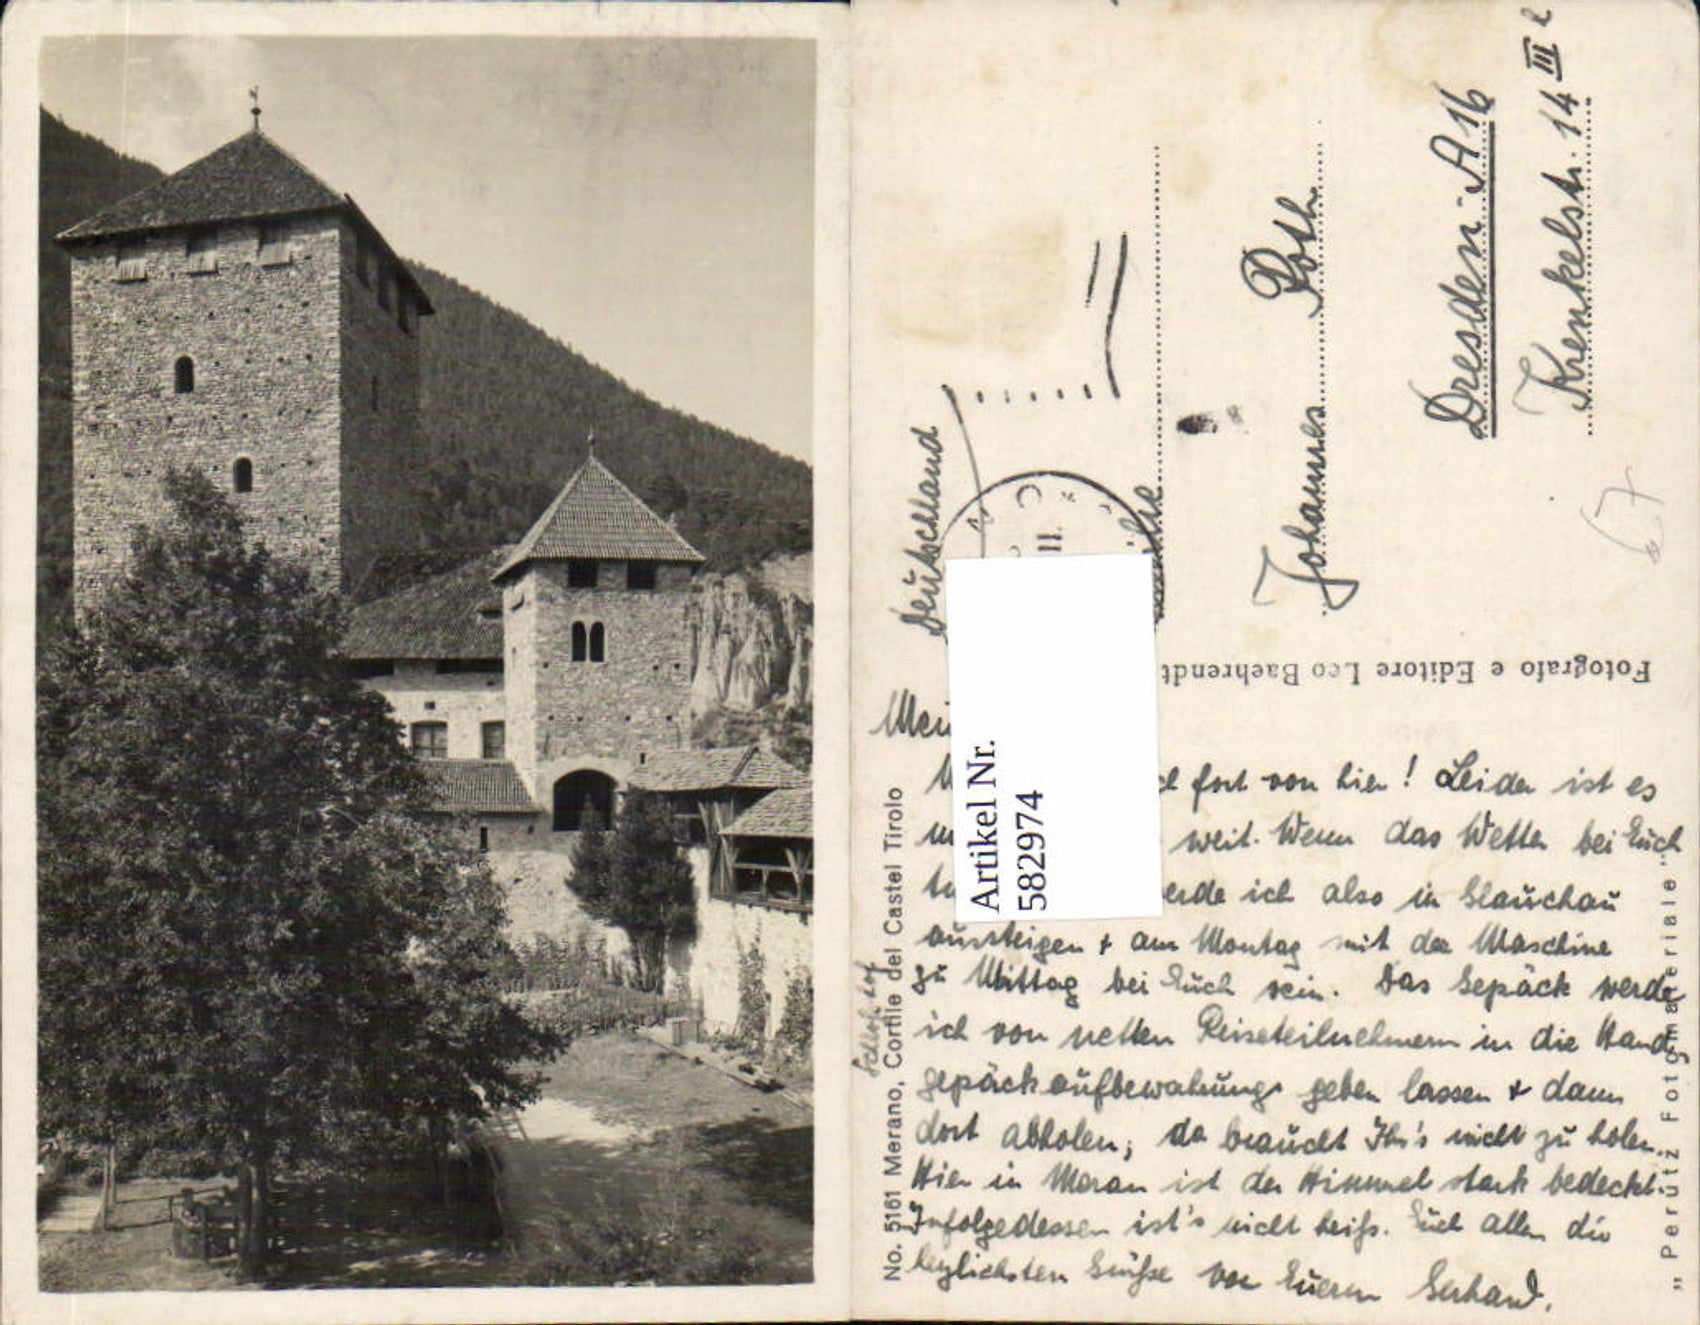 Deutschland
Johannes Roth
Dresden-A 16
Krenkelstr. 14 III
Fotografo e Editore Leo Baehrendt
Artikel Nr.
5829974
No. 5161 Merano, Cortile del Castel Tirolo
Schloßhof
"Perutz Fotomateriale"
fort von hier! Leider ist es
weit. Wenn das Wetter bei Euch
ich also in Glauchau
aussteigen + am Montag mit der Maschine
zu Mittag bei Euch sein. Das Gepäck werde
ich von netten Reiseteilnehmern in die Hand-
gepäckaufbewahrung geben lassen + dann
dort abholen, da braucht Ihr's nicht zu holen.
Hier in Meran ist der Himmel stark bedeckt.
Infolgedessen ist's nicht heiß. Euch allen die
herzlichsten Grüße von Eurem Gerhard.